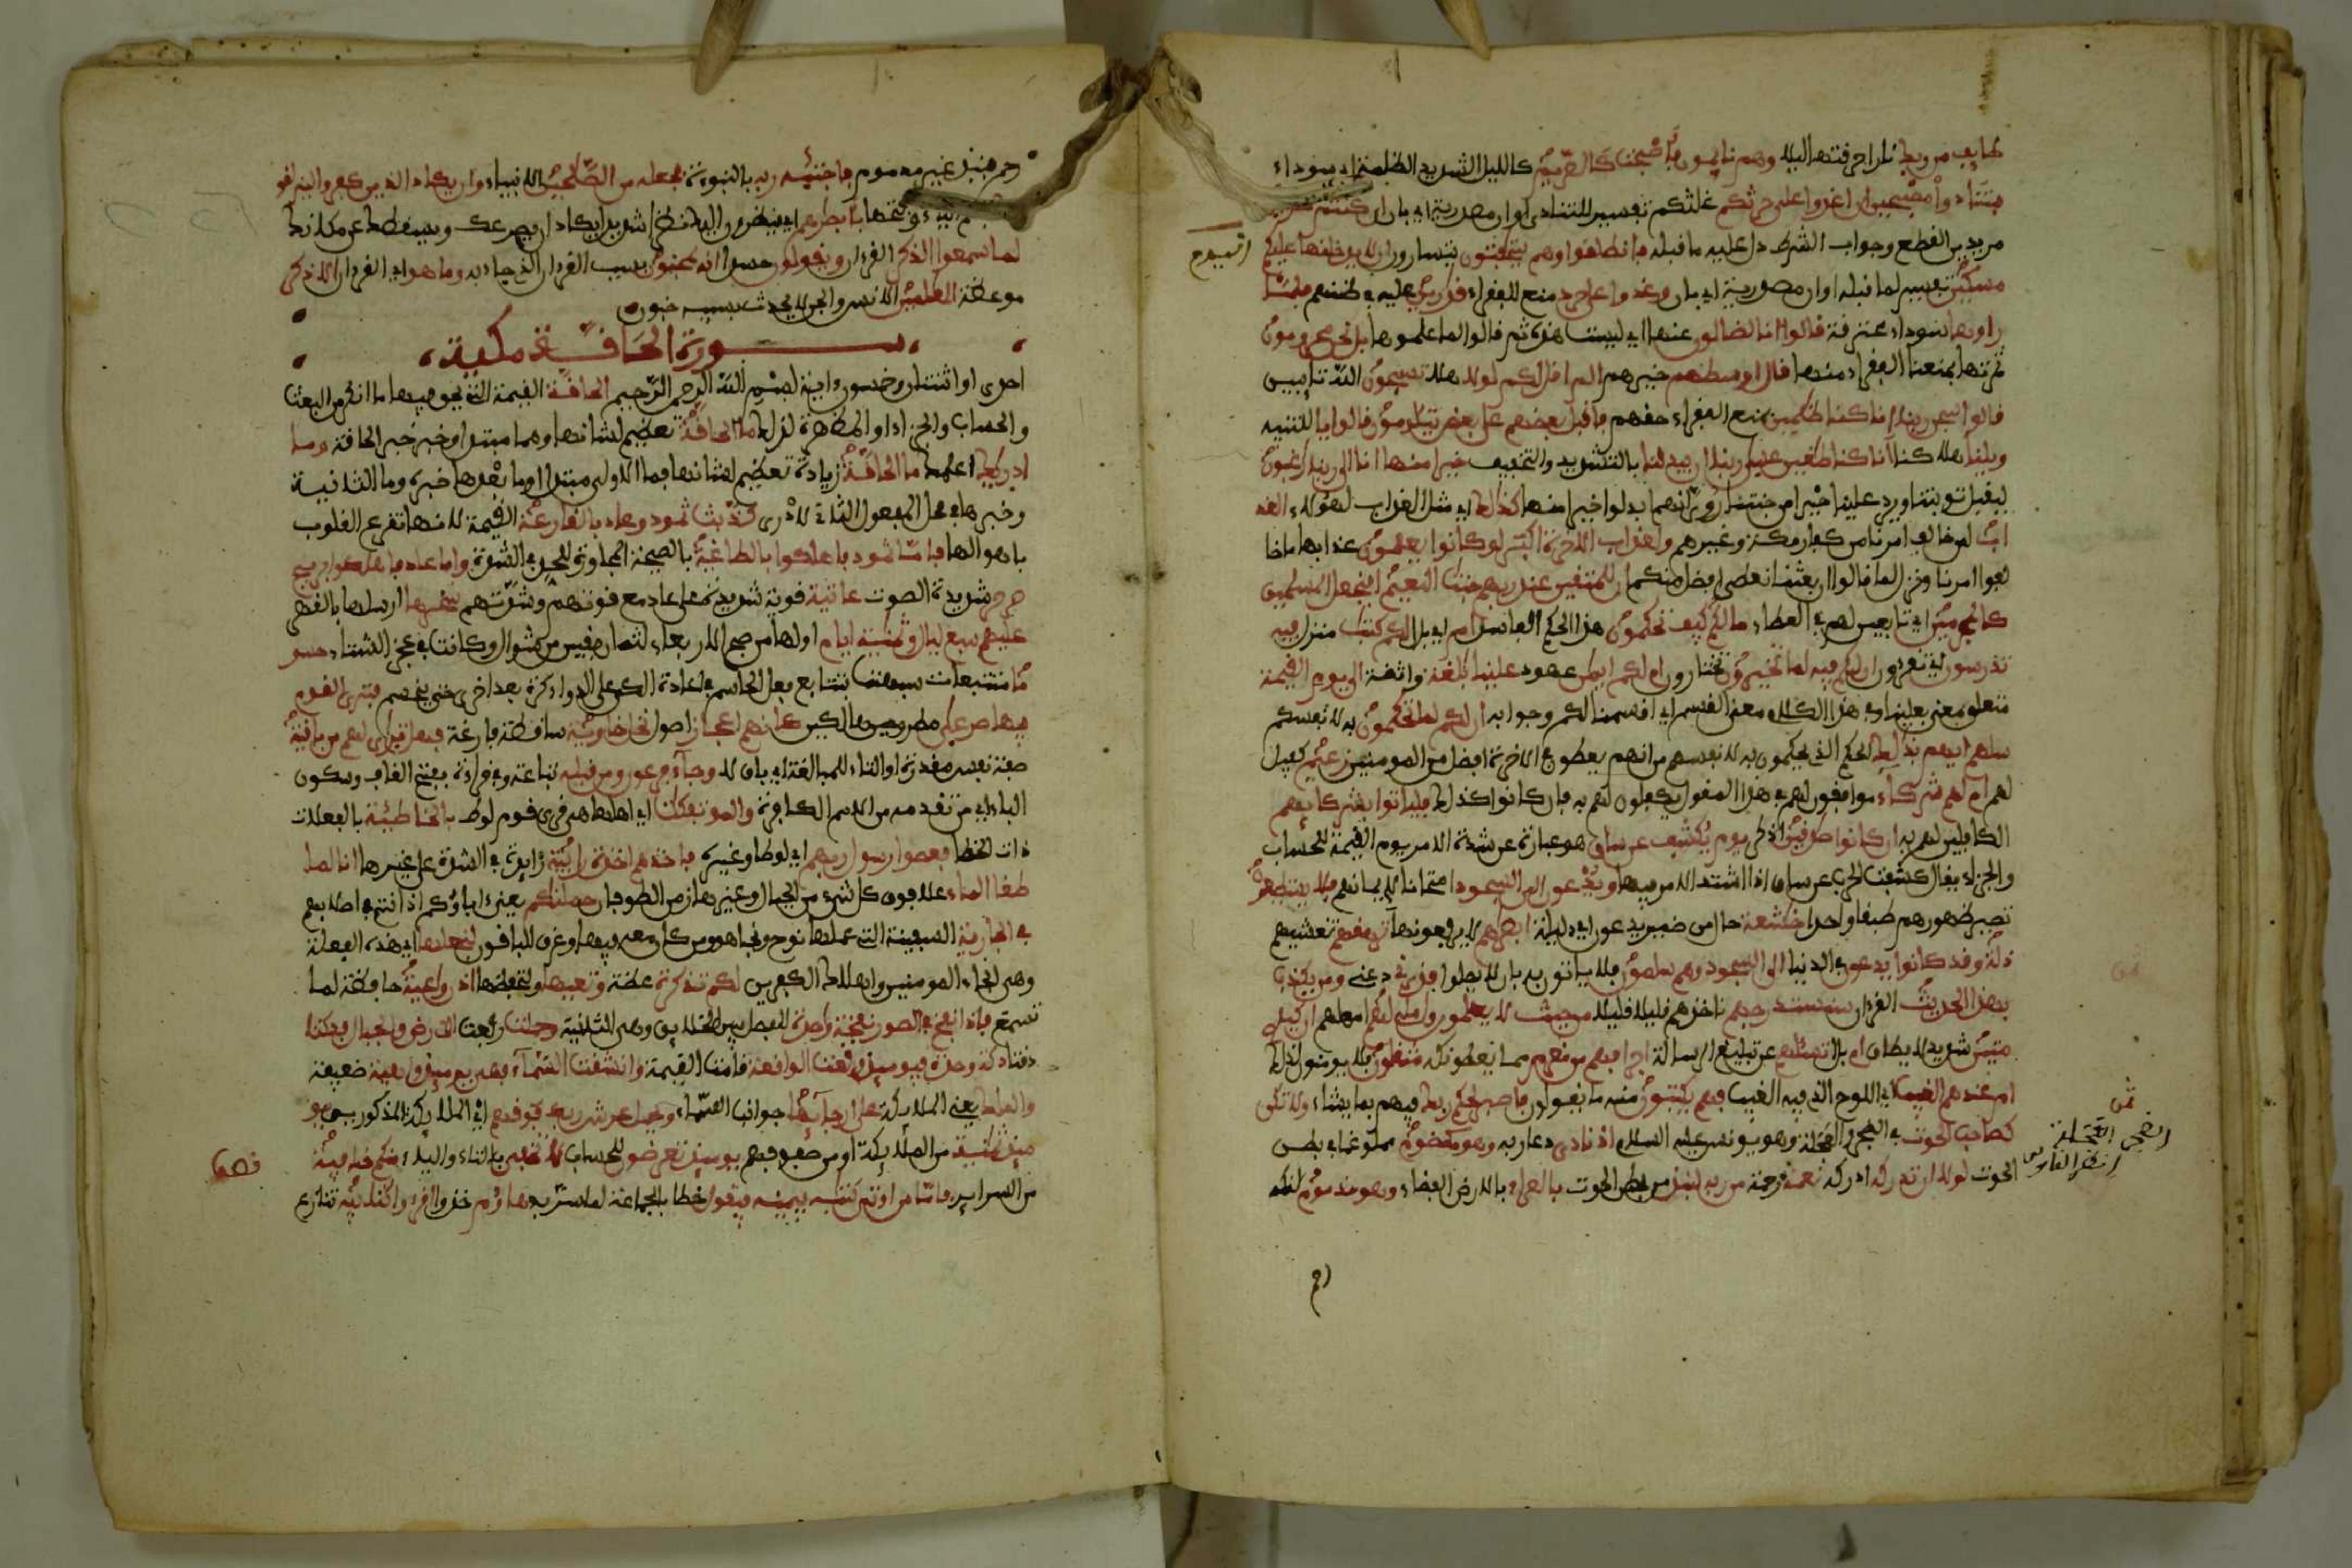 طايف من ربك نار احرقتها ليلا وهم نايمون فأصبحت كالصريم كالليل الشديد الظلمة اي سوداء
فتنادوا مصبحين ان اغدوا على حرثكم غلتكم تفسير للتنادي او ان مصدرية اي بان ان كنتم صرمين
مريدين القطع وجواب الشرط دل عليه ما قبله فانطلقوا وهم يتخفتون يتسارون ان لا يدخلنها اليوم عليكم
مسكين تفسير لما قبله او ان مصدرية اي بان وغدوا على حرد منع للفقراء قدرين عليه في ظنهم فلما
راوها سوداء محترفة قالوا انا لضالون عنها اي ليست هذه ثم قالوا لما علموها بل نحن محرومون
ثمرتها بمنعنا الفقراء منها قال اوسطهم خيرهم الم اقل لكم لولا هلا تسبحون الله تايبين
قالوا سبحن ربنا انا كنا ظلمين بمنع الفقراء حقهم فاقبل بعضهم على بعض يتلاومون قالوا يا للتنبيه
ويلنا هلاكنا انا كنا طغين عسى ربنا ان يبدلنا بالتشديد والتخفيف خيرا منها انا الى ربنا رغبون
ليقبل توبتنا ويرد علينا خيرا من جنتنا روي انهم بدلوا خيرا منها كذلك اي مثل العذاب لهؤلاء العذ
اب لمن خالف امرنا من كفار مكة وغيرهم ولعذاب الاخرة اكبر لو كانوا يعلمون عذابها ما خا
لفوا امرنا ونزل لما قالوا ان بعثنا نعطى افضل منكم ان للمتقين عند ربهم جنت النعيم افنجعل المسلمين
كالمجرمين اي تابعين لهم في العطاء مالكم كيف تحكمون هذا الحكم الفاسد ام اي بل الكم كتب منزل فيه
تدرسون اي تقرءون ان لكم فيه لما تخيرون تختارون ام لكم ايمن عهود علينا بلغة واثقة الى يوم القيمة
متعلق معنى بعلينا وفي هذا الكلام معنى القسم اي اقسمنا لكم وجوابه ان لكم لما تحكمون به لانفسكم
سلهم ايهم بذلك الحكم الذي يحكمون به لانفسهم من انهم يعطون في الاخرة افضل من المومنين زعيم كفيل
لهم ام لهم شركاء موافقون لهم في هذا المقول يكفلون لهم به فان كانوا كذلك فلياتوا بشركايهم
الكافلين لهم به ان كانوا صدقين اذكر يوم يكشف عن ساق هو عبارة عن شدة الامر يوم القيمة للحساب
والجزاء يقال كشفت الحرب عن ساق اذا اشتد الامر فيها ويدعون الى السجود امتحانا لايمانهم فلا يستطيعون
تصير ظهورهم طبقا واحدا خشعة حال من ضمير يدعون اي ذليلة ابصرهم لا يرفعونها ترهقهم تغشيهم
ذلة وقد كانوا يدعون في الدنيا الى السجود وهم سلمون فلا ياتون به بان لا يصلوا فذرني دعني ومن يكذب
بهذا الحديث القران سنستدرجهم ناخذهم قليلا قليلا من حيث لا يعلمون واملي لهم امهلهم ان كيدي
متين شديد لا يطاق ام بل اتسئلهم عن تبليغ الرسالة اجرا فهم من مغرم مما يعطونكه مثقلون فلا يومنون لذلك
ام عندهم الغيب اي اللوح الذي فيه الغيب فهم يكتبون منه ما يقولون فاصبر لحكم ربك فيهم بما يشاء ولا تكن
كصاحب الحوت في الضجر والعجلة وهو يونس عليه السلام اذ نادى دعا ربه وهو مكظوم مملو غما في بطن
الحوت لولا ان تدركه ادركه نعمة رحمة من ربه لنبذ من بطن الحوت بالعراء بالارض الفضاء وهو مذموم لكنه
ثمن
رح
حرم فنبذ غير مذموم فاجتبه ربه بالنبوءة فجعله من الصلحين الانبياء وان يكاد الذين كفروا ليزلقو
نك بضم الياء وفتحها بأبصرهم اي ينظرون اليك نظرا شديدا يكاد ان يصرعك ويسقطك عن مكانك
لما سمعوا الذكر القران ويقولون حسدا انه لمجنون بسبب القران الذي جاء به وما هو اي القران الا ذكر
موعظة للعلمين الانس والجن لا يحدث بسببه جنون
سورة الحاقة مكية
احدى او اثنتان وخمسون اية بسم الله الرحمن الرحيم الحاقة القيمة التي يحق فيها ما انكر من البعث
والحساب والجزاء او المظهرة لذلك ما الحاقة تعظيم لشانها وهما مبتدا وخبر خبر الحاقة وما
ادريك اعلمك ما الحاقة زيادة تعظيم لشانها فما الاولى مبتدا وما بعدها خبره وما الثانية
وخبرها في محل المفعول الثاني لادرى كذبت ثمود وعاد بالقارعة القيمة لانها تقرع القلوب
باهوالها فاما ثمود فاهلكوا بالطاغية بالصيحة المجاوزة للحد في الشدة واما عاد فاهلكوا بريح
صرصر شديدة الصوت عاتية قوية شديدة على عاد مع قوتهم وشدتهم سخرها ارسلها بالقهر
عليهم سبع ليال وثمنية ايام اولها من صبح الاربعاء لثمان بقين من شوال وكانت في عجز الشتاء حسو
ما متتبعات شبهت بتتابع فعل الحاسم في اعادة الكي على الداء كرة بعد اخرى حتى ينحسم فترى القوم
فيها صرعى مطروحين هالكين كانهم اعجاز اصول نخل خاوية ساقطة فارغة فهل ترى لهم من باقية
صفة نفس مقدرة او التاء للمبالغة اي باق لا وجاء فرعون ومن قبله تباعه وفي قراءة بفتح القاف وسكون
الباء اي من تقدمه من الامم الكافرة والموتفكت اي اهلها هي قرى قوم لوط بالخاطئة بالفعلات
ذات الخطا فعصوا رسول ربهم اي لوطا وغيره فاخذهم اخذة رابية زايدة في الشدة على غيرها انا لما
طغا الماء علا فوق كل شيء من الجبال وغيرها زمن الطوفان حملنكم يعني اباؤكم اذ انتم في اصلابهم
في الجارية السفينة التي عملها نوح ونجا هو ومن كان معه فيها وغرق الباقون لنجعلها اي هذه الفعلة
وهي انجاء المومنين واهلاك الكفرين لكم تذكرة عظة وتعيها ولتحفظها اذن واعية حافظة لما
تسمع فاذا نفخ في الصور نفخة وحدة للفصل بين الخلايق وهي الثانية وحملت رفعت الارض والجبال فدكتا
دقتا دكة وحدة فيوميذ وقعت الواقعة قامت القيمة وانشقت السماء فهي يوميذ واهية ضعيفة
والملك يعني الملايكة على ارجايها جوانب السماء ويحمل عرش ربك فوقهم اي الملايكة المذكورين يو
ميذ ثمنية من الملايكة او من صفوفهم يوميذ تعرضون للحساب لا تخفى بالتاء والياء منكم خافية
من السراير فاما من اوتي كتبه بيمينه فيقول خطابا لجماعة لما سر به هاؤم خذوا اقرءوا كتبيه تنازع
نصف